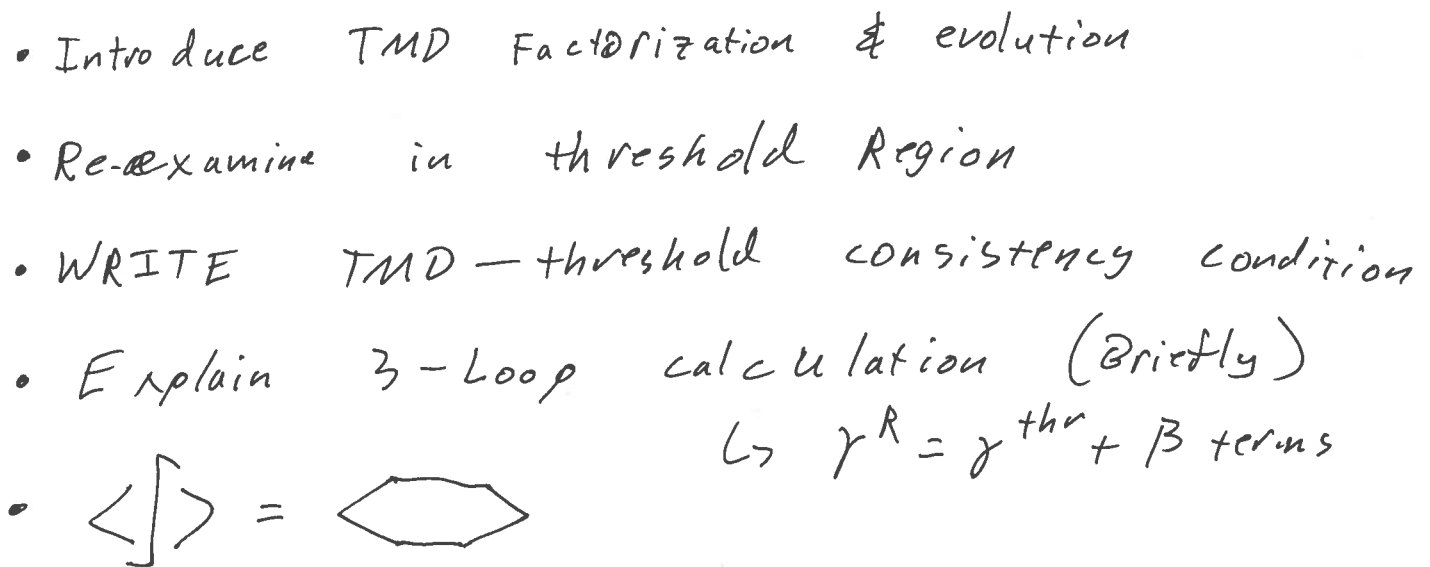 • Introduce TMD Factorization & evolution
• Re-examine in threshold Region
• WRITE TMD – threshold consistency condition
• Explain 3-Loop calculation (Briefly)
↳ γ^R = γ^thr + β terms
• <∫> =